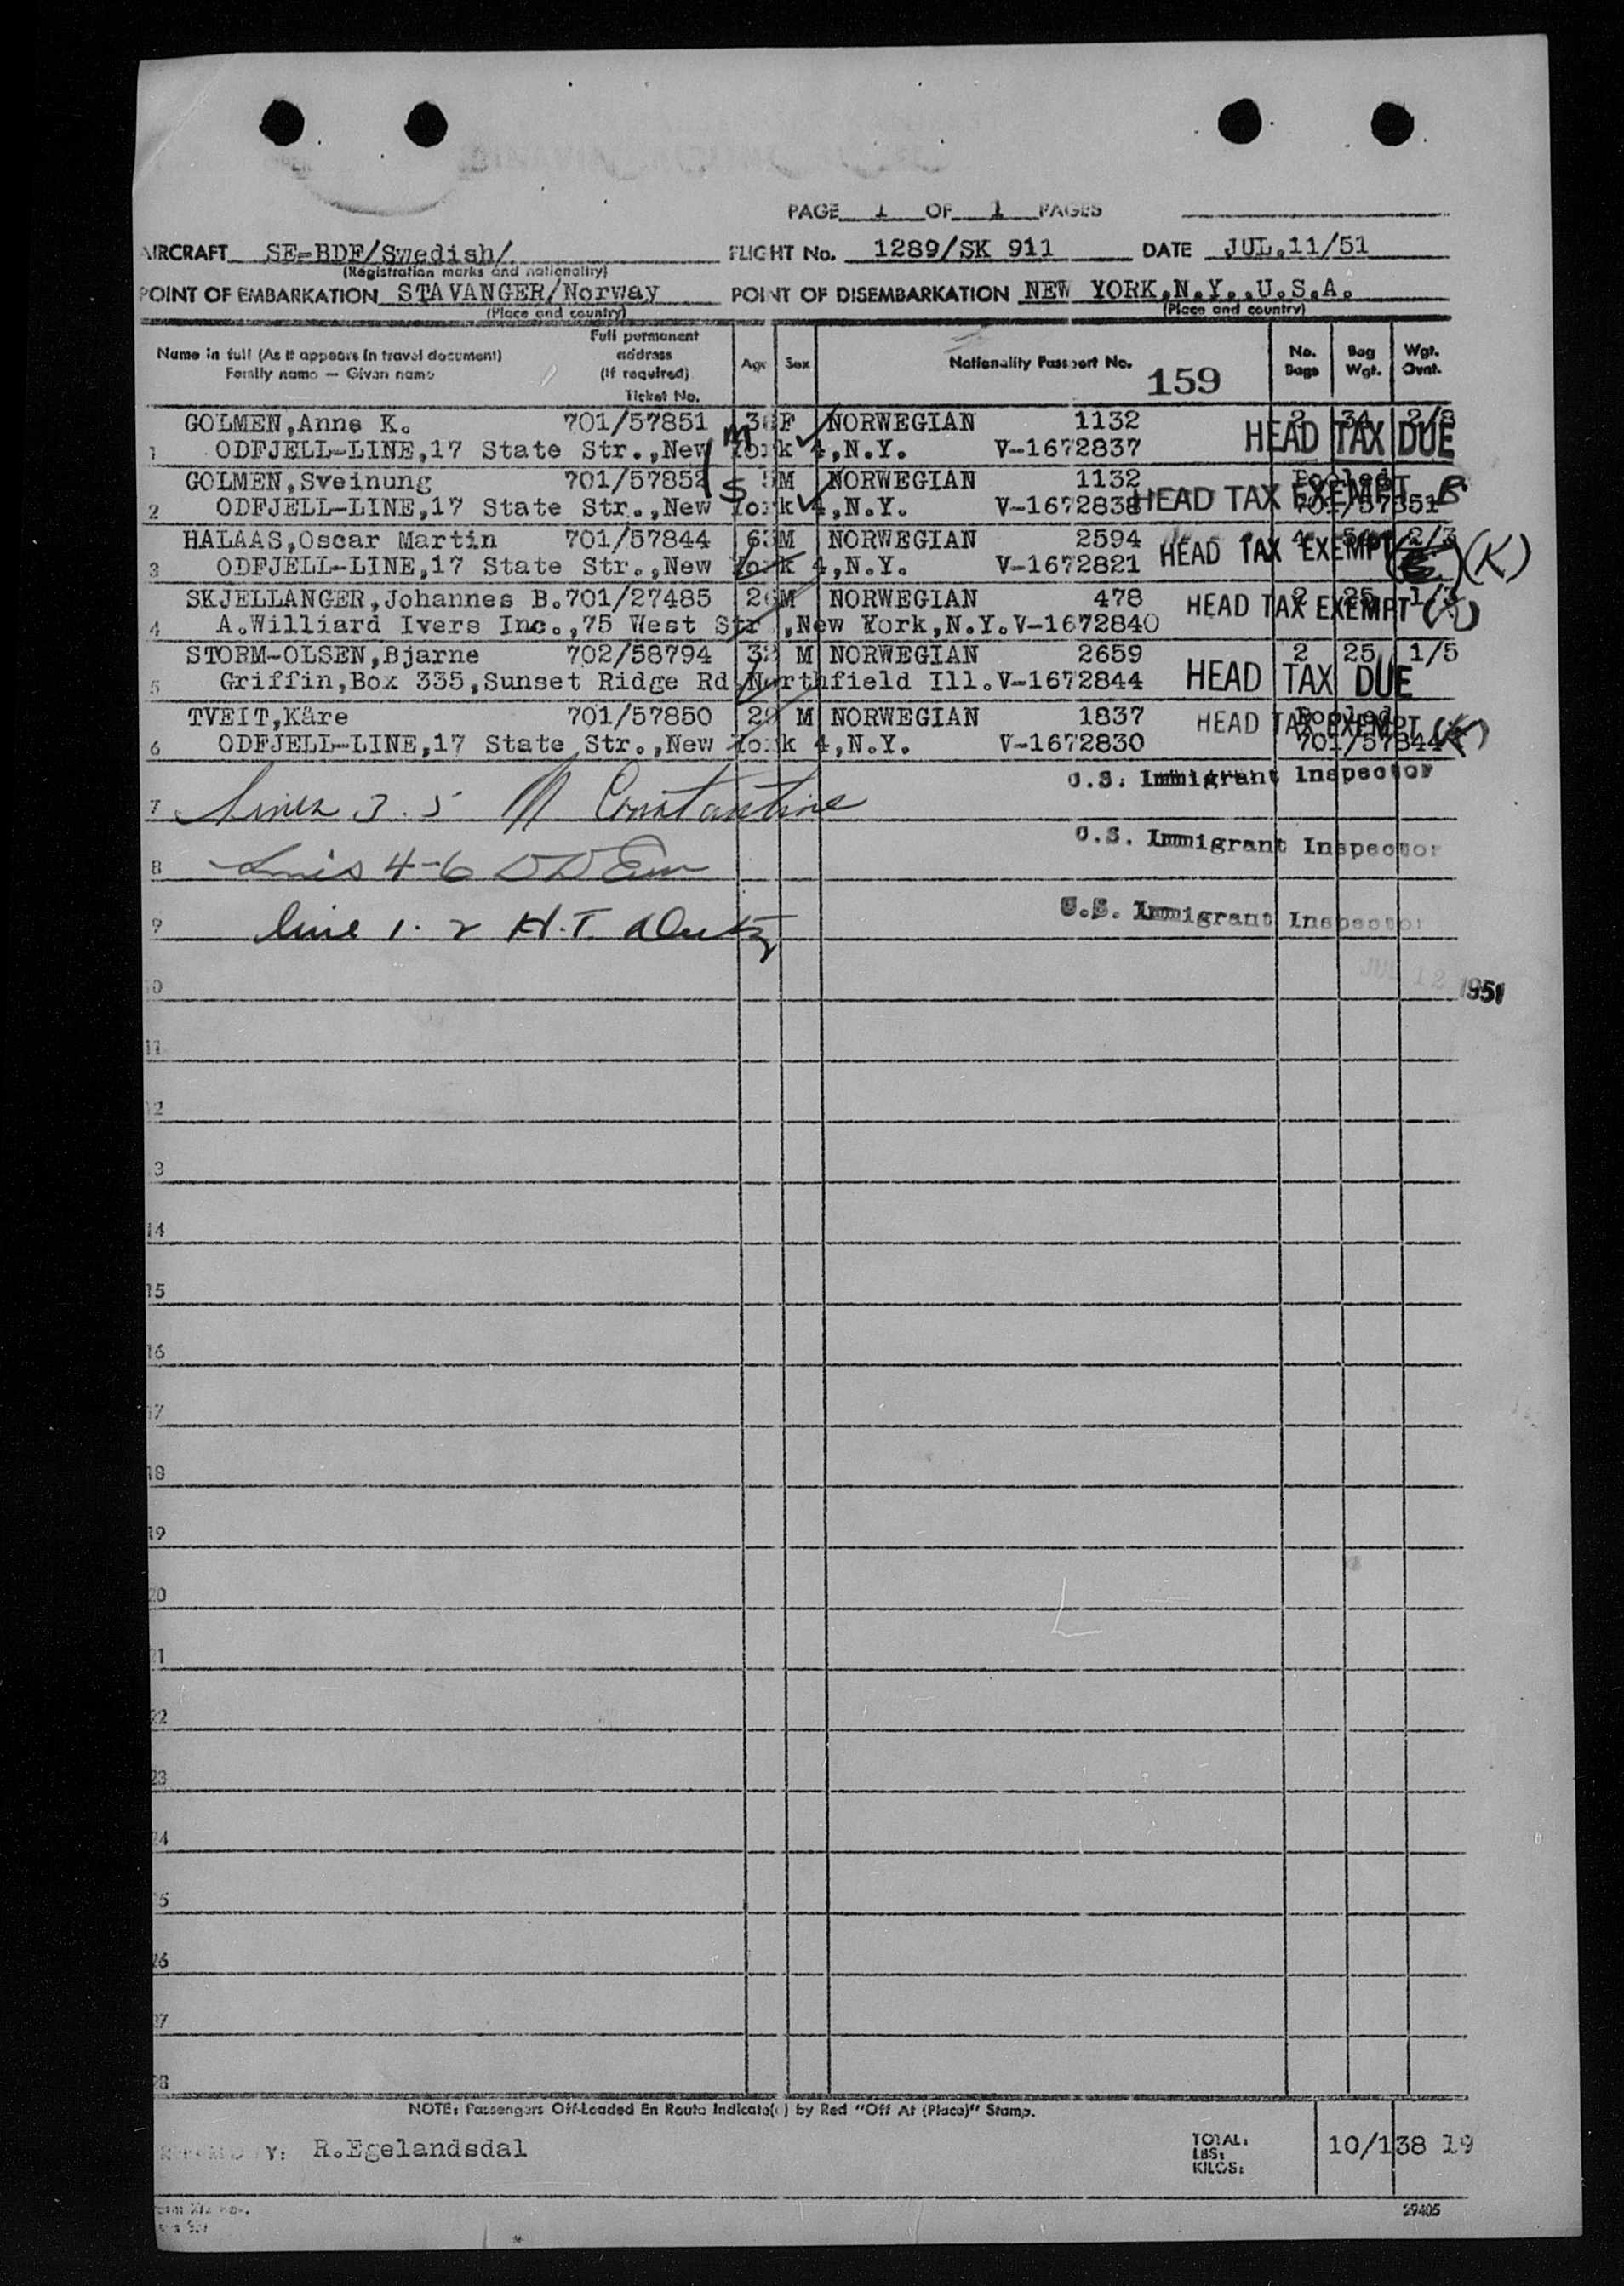 PAGE 1 OF 1 PAGES
AIRCRAFT SE-BDF/Swedish/ FLIGHT No. 1289/SK 911 DATE JUL.11/51
(Registration marks and nationality)
POINT OF EMBARKATION STAVANGER/Norway POINT OF DISEMBARKATION NEW YORK,N.Y.,U.S.A.
(Place and country) (Place and country)
Name in full (As it appears in travel document) Family name — Given name
Full permanent address (If required) Ticket No.
Age Sex Nationality Passport No. 159 No. Bags Bag Wgt. Wgt. Ovnt.
GOLMEN,Anne K. 701/57851 F NORWEGIAN 1132 2 34 2/8
1 ODFJELL-LINE,17 State Str.,New York 4,N.Y. V-1672837 HEAD TAX DUE
M
GOLMEN,Sveinung 701/57852 5 M NORWEGIAN 1132 Pooled
2 ODFJELL-LINE,17 State Str.,New York 4,N.Y. V-1672838 HEAD TAX EXEMPT 701/57851
S
HALAAS,Oscar Martin 701/57844 63 M NORWEGIAN 2594 4 2/3
3 ODFJELL-LINE,17 State Str.,New York 4,N.Y. V-1672821 HEAD TAX EXEMPT (K)
SKJELLANGER,Johannes B. 701/27485 M NORWEGIAN 478 2 25
4 A.Williard Ivers Inc.,75 West Str ,New York,N.Y. V-1672840 HEAD TAX EXEMPT
STORM-OLSEN,Bjarne 702/58794 32 M NORWEGIAN 2659 2 25 1/5
5 Griffin,Box 335,Sunset Ridge Rd Northfield Ill. V-1672844 HEAD TAX DUE
TVEIT,Kåre 701/57850 29 M NORWEGIAN 1837 Pooled
6 ODFJELL-LINE,17 State Str.,New York 4,N.Y. V-1672830 HEAD TAX EXEMPT 701/57844 (K)
U.S. Immigrant Inspector
7 Lines 3.5 N Constantine
U.S. Immigrant Inspector
8 4-6
U.S. Immigrant Inspector
9 line 1.2 H.T.
JUL 12 1951
10
11
12
13
14
15
16
17
18
19
20
21
22
23
24
25
26
27
28
NOTE: Passengers Off-Loaded En Route Indicate(d) by Red "Off At (Place)" Stamp.
R.Egelandsdal
TOTAL: 10/138 19
LBS:
KILOS:
29405